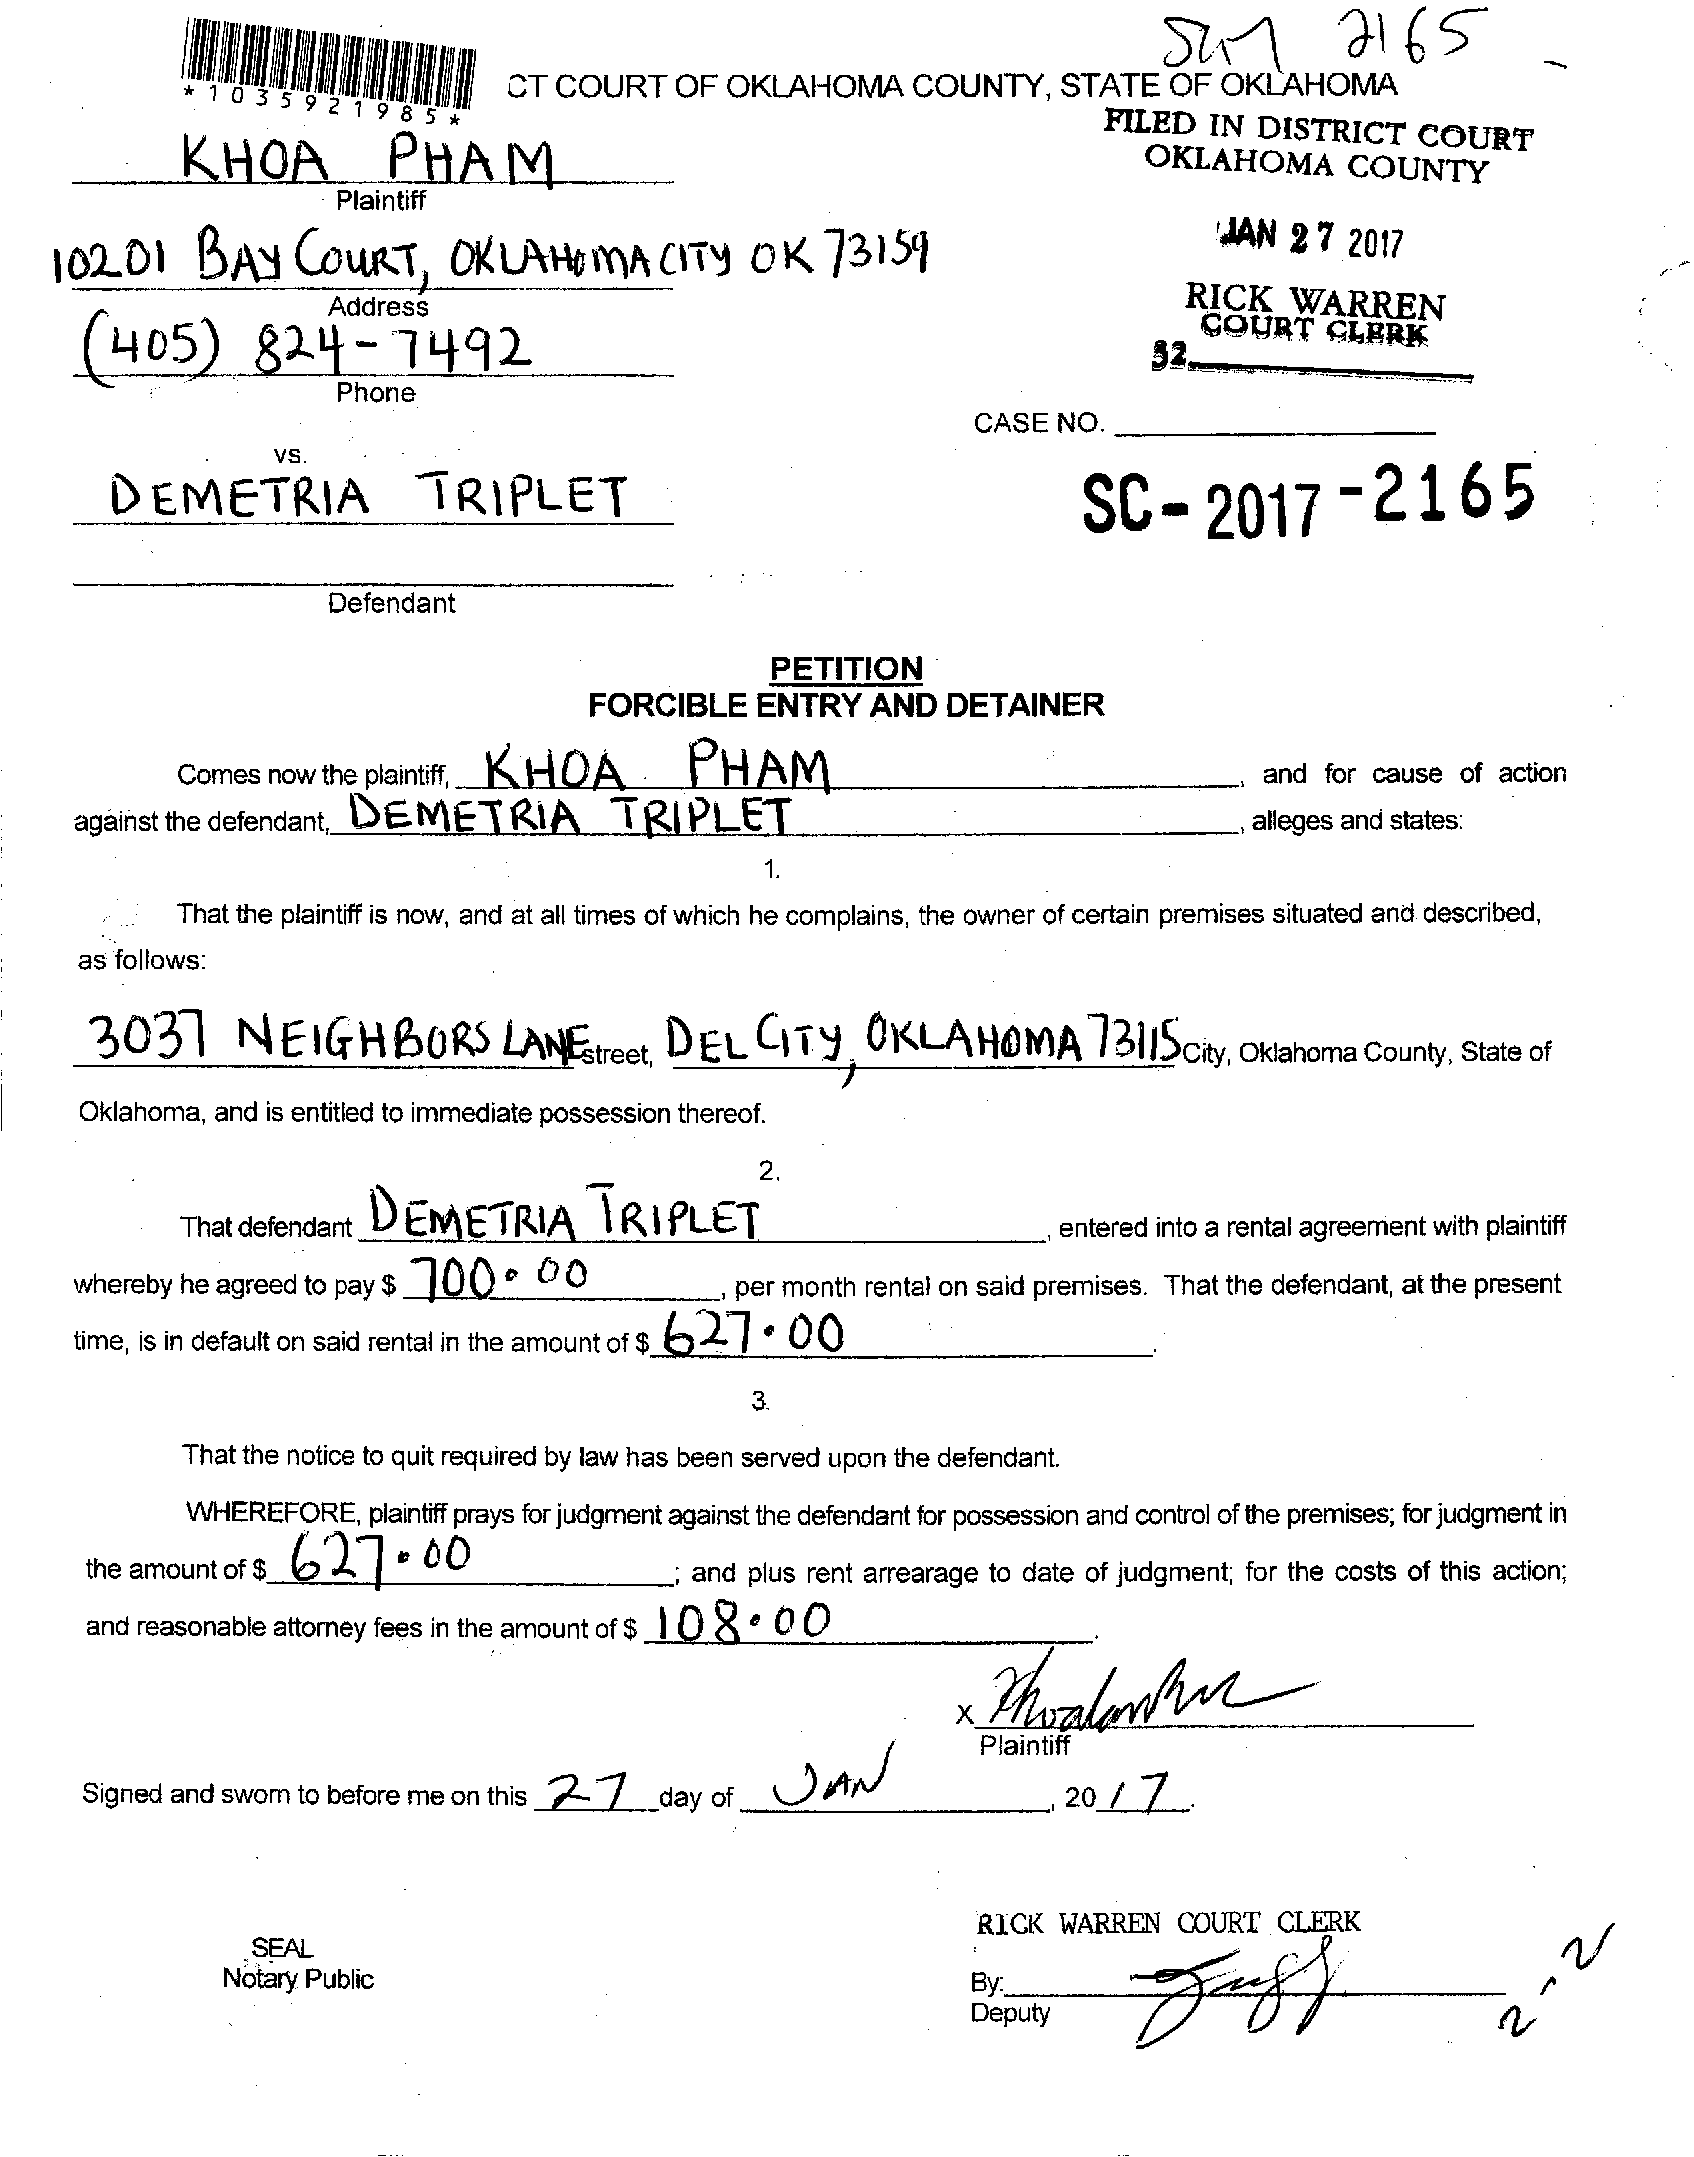 2165
*1035921985*
CT COURT OF OKLAHOMA COUNTY, STATE OF OKLAHOMA
FILED IN DISTRICT COURT
OKLAHOMA COUNTY
KHOA PHAM
Plaintiff
JAN 27 2017
10201 BAY COURT, OKLAHOMA CITY OK 73159
Address
RICK WARREN
COURT CLERK
32
(405) 824-7492
Phone
CASE NO.
vs.
DEMETRIA TRIPLET
SC-2017-2165
Defendant
PETITION
FORCIBLE ENTRY AND DETAINER
Comes now the plaintiff, KHOA PHAM, and for cause of action
against the defendant, DEMETRIA TRIPLET, alleges and states:
1.
That the plaintiff is now, and at all times of which he complains, the owner of certain premises situated and described,
as follows:
3037 NEIGHBORS LANE street, DEL CITY, OKLAHOMA 73115 City, Oklahoma County, State of
Oklahoma, and is entitled to immediate possession thereof.
2.
That defendant DEMETRIA TRIPLET, entered into a rental agreement with plaintiff
whereby he agreed to pay $ 700.00, per month rental on said premises. That the defendant, at the present
time, is in default on said rental in the amount of $ 627.00.
3.
That the notice to quit required by law has been served upon the defendant.
WHEREFORE, plaintiff prays for judgment against the defendant for possession and control of the premises; for judgment in
the amount of $ 627.00; and plus rent arrearage to date of judgment; for the costs of this action;
and reasonable attorney fees in the amount of $ 108.00.
X
Plaintiff
Signed and sworn to before me on this 27 day of JAN, 2017.
RICK WARREN COURT CLERK
SEAL
Notary Public
By:
Deputy
2-2